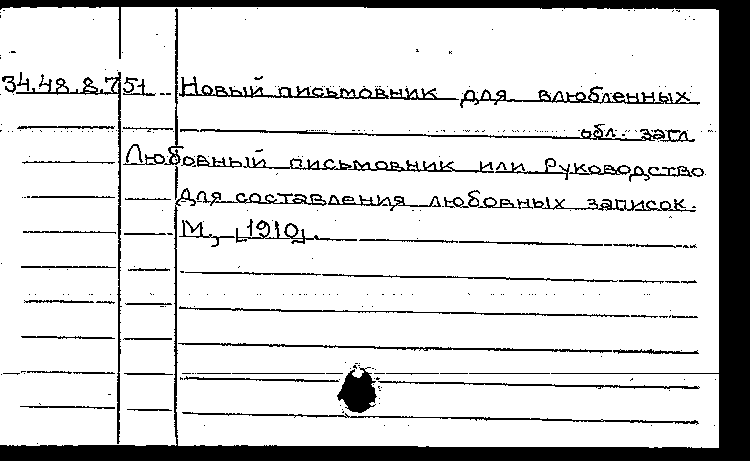 34.48.8.751 Новый письмовник для влюбленных
обл. загл
Любовный письмовник или Руководство
для составления любовных записок.
М., [1910].